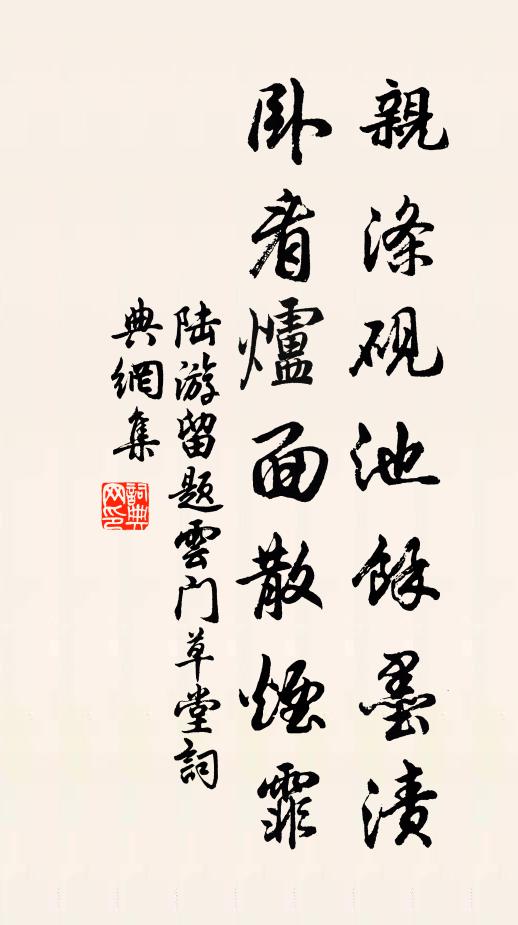 親滌硯池餘墨漬
卧看爐面散煙霏
陆游留题雲门草堂詞
典網集
詞典
网印